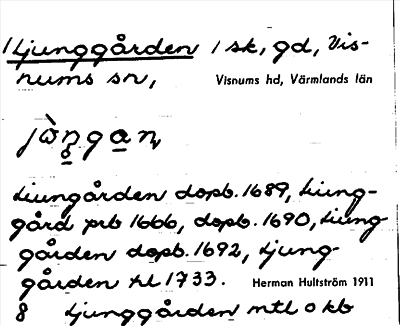 Ljunggården 1 sk, gd, Vis-
nums sn,
Visnums hd, Värmlands län
jò̀n̥gan,
Liungården dopb. 1689, Liung-
gård prb 1666, dopb. 1690, Liung
gården dopb. 1692, Ljung-
gården kl 1733.
Herman Hultström 1911
8 Ljunggården mtl o kb